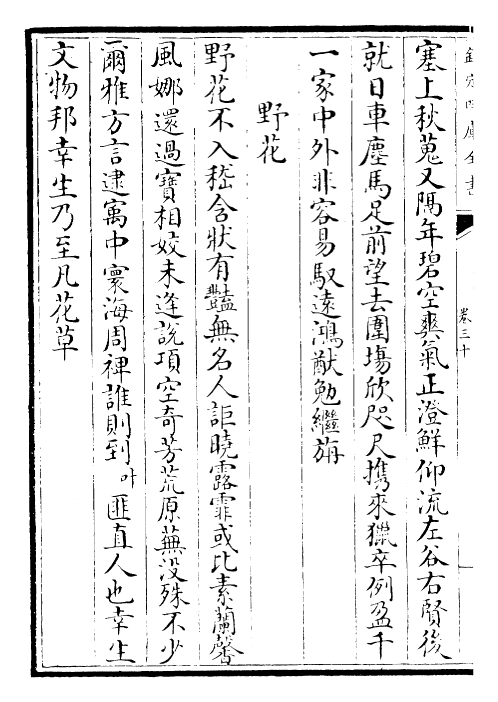 欽定四庫全書
卷三十
塞上秋蒐又隔年碧空爽氣正澄鮮仰流左谷右賢後
就日車塵馬足前望去圍場欣咫尺携來獵卒例盈千
一家中外非容易馭遠鴻猷勉繼旃
野花
野花不入嵇含狀有豔無名人詎曉露霏或比素蘭馨
風娜還過寶相姣未逢說項空奇芳荒原蕪没殊不少
爾雅方言逮寓中寰海周裨誰則到叶匪直人也幸生
文物邦幸生乃至凡花草